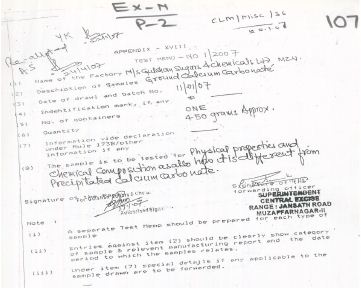 EX-M
P-2
CLM/MISC/36
107
APPENDIX - XVIII
TEST MEMO - NO 1/2007
(1) Name of the Factory M/s Gulshan Sugars & Chemicals Ltd MZN.
(2) Description of Samples Ground Calcium Carbonate
(3) Date of drawl and batch No. 11/01/07
(4) Indentification mark, if any
(5) No. of containers ONE
(6) Quantity 450 grams Approx.
(7) Information wide declaration
under Rule 173B/other
Information if any
(8) The sample is to be tested for Physical properties and
chemical Composition as also how it is different from
Precipitated calcium carbonate.
Signature of
forwarding officer
SUPERINTENDENT
CENTRAL EXCISE
RANGE: JANSATH ROAD
MUZAFFARNAGAR-II
Note :
(i) A separate Test Memo should be prepared for each type of
sample
(ii) Entries against item (2) should be clearly show category
of sample & relevant manufacturing report and the date
period to which the samples relates.
(iii) Under item (7) special details if any applicable to the
sample drawn are to be forwarded.